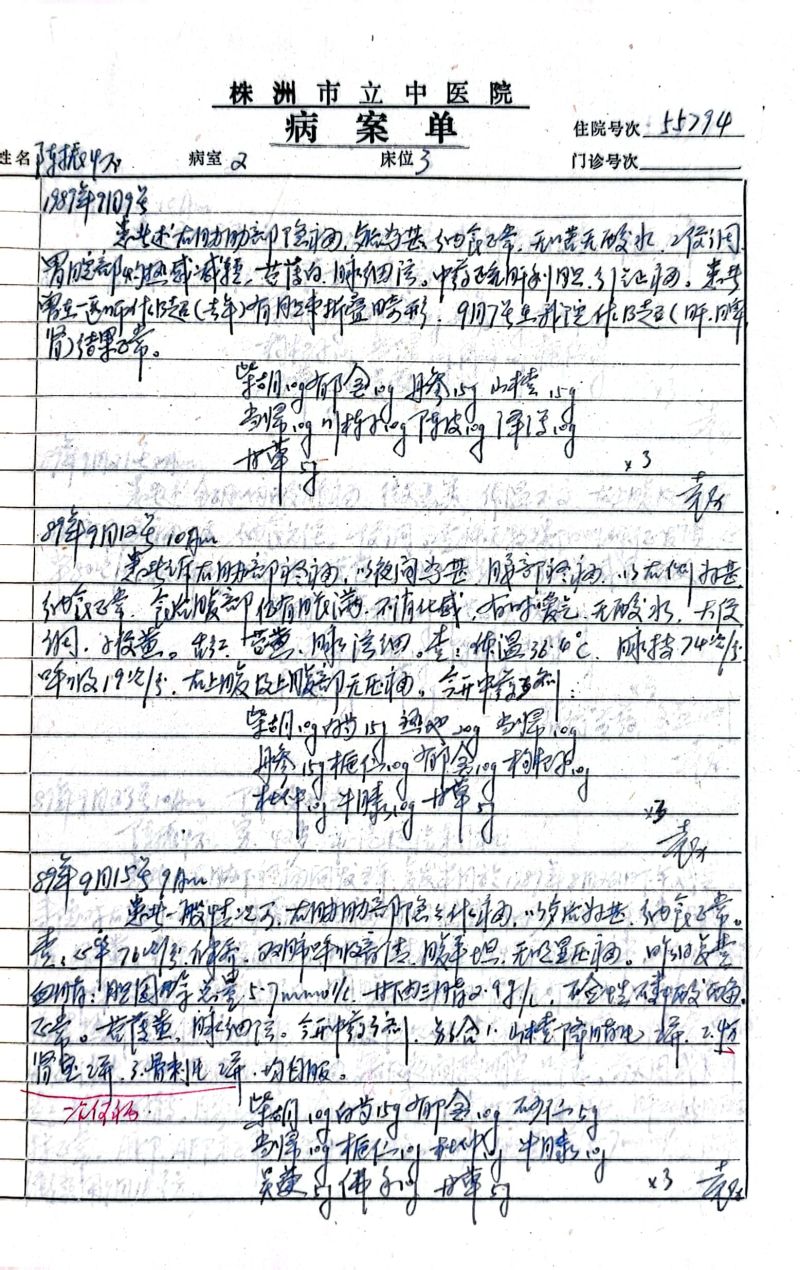 株洲市立中医院
病案单
住院号次 55794
姓名 陈振怀 病室 2 床位 3 门诊号次
1989年9月9号
患者述右胁肋部隐痛，纳食正常，无嗳无酸水，二便调
胃脘部灼热感减轻，苔薄白，脉细弦。中药疏肝利胆
(去年)有胆囊折叠畸形，9月7号
肾)结果正常。
柴胡10g 郁金10g 丹参15g 山楂15g
当归10g 川楝子10g 陈皮10g 泽泻10g
甘草5g ×3
89年9月12号 10Am
患者诉右胁部疼痛，以夜间为甚，腰部疼痛，以右侧为甚
纳食正常，食后腹部仍有胀满，不消化感，有时嗳气，无酸水，大便
调，小便黄。舌红，苔黄，脉弦细。查：体温36.4℃，脉搏74次/分
呼吸19次/分，右上腹及上腹部无压痛。今开中药3剂：
柴胡10g 白芍15g 熟地20g 当归10g
丹参15g 栀仁10g 郁金10g 枸杞10g
杜仲10g 牛膝10g 甘草5g ×3
89年9月15号 9Am
患者一般情况可，右胁肋部隐痛，纳食正常。
查：心率76次/分，律齐，双肺呼吸音清，腹平坦，无明显压痛。
血脂：胆固醇总量5.7mmol/L，甘油三脂2.9g/L
正常。苔薄黄，脉细弦。今开中药3剂，另给1.山楂降脂片2瓶，2.
肾宝2瓶，3.骨刺片2瓶，均自服。
柴胡10g 白芍15g 郁金10g 砂仁5g
当归10g 栀仁10g 杜仲10g 牛膝10g
吴萸5g 佛手10g 甘草5g ×3